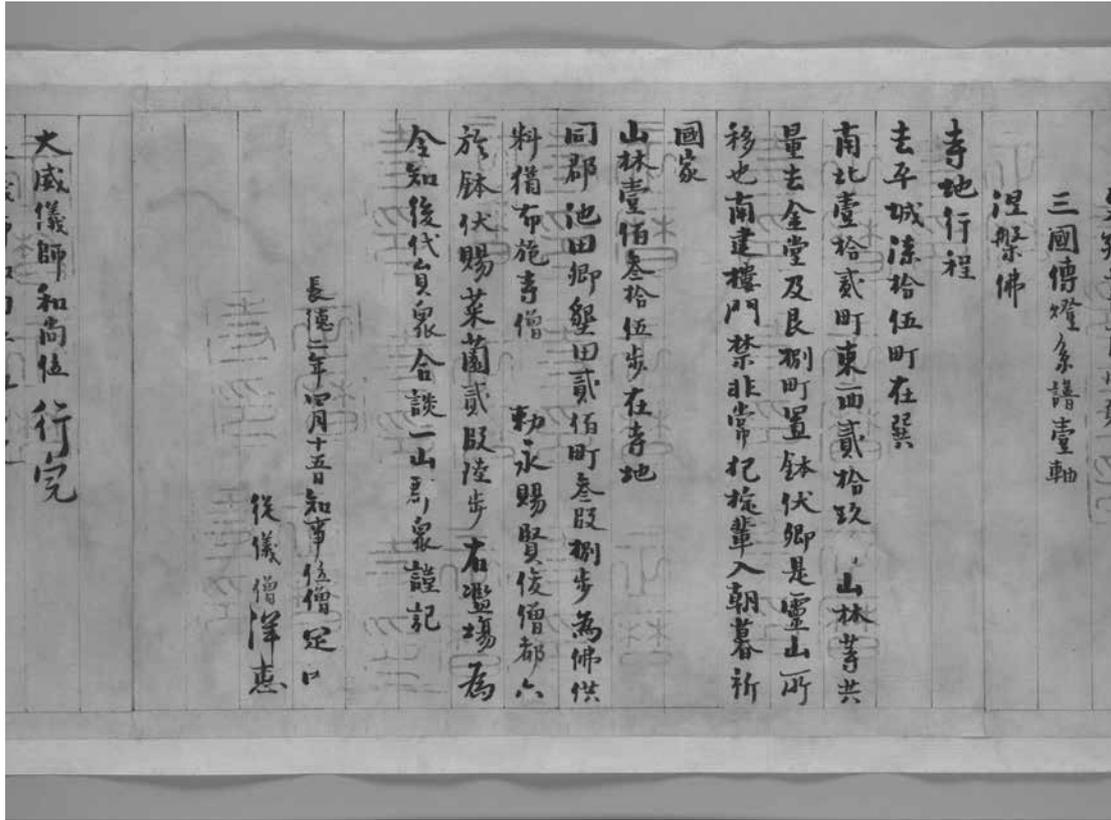 三國傳燈系譜壹軸
涅槃佛
寺地行程
去平城漆拾伍町在巽
南北壹拾貳町東西貳拾玖 山林等共
量去金堂及艮捌町置鉢伏卿是靈山所
移也南建樓門禁非常犯穢輩入朝暮祈
國家
山林壹佰參拾伍步在寺地
同郡池田卿墾田貳佰町參段捌步為佛供
料猶布施寺僧 勅永賜賢俊僧都六
於鉢伏賜菜薗貳段陸步右濫塲為
令知後代貟衆合談一山 衆謹記
長德二年四月十五日知事位僧定
從儀僧澤惠
大威儀師和尚位行完